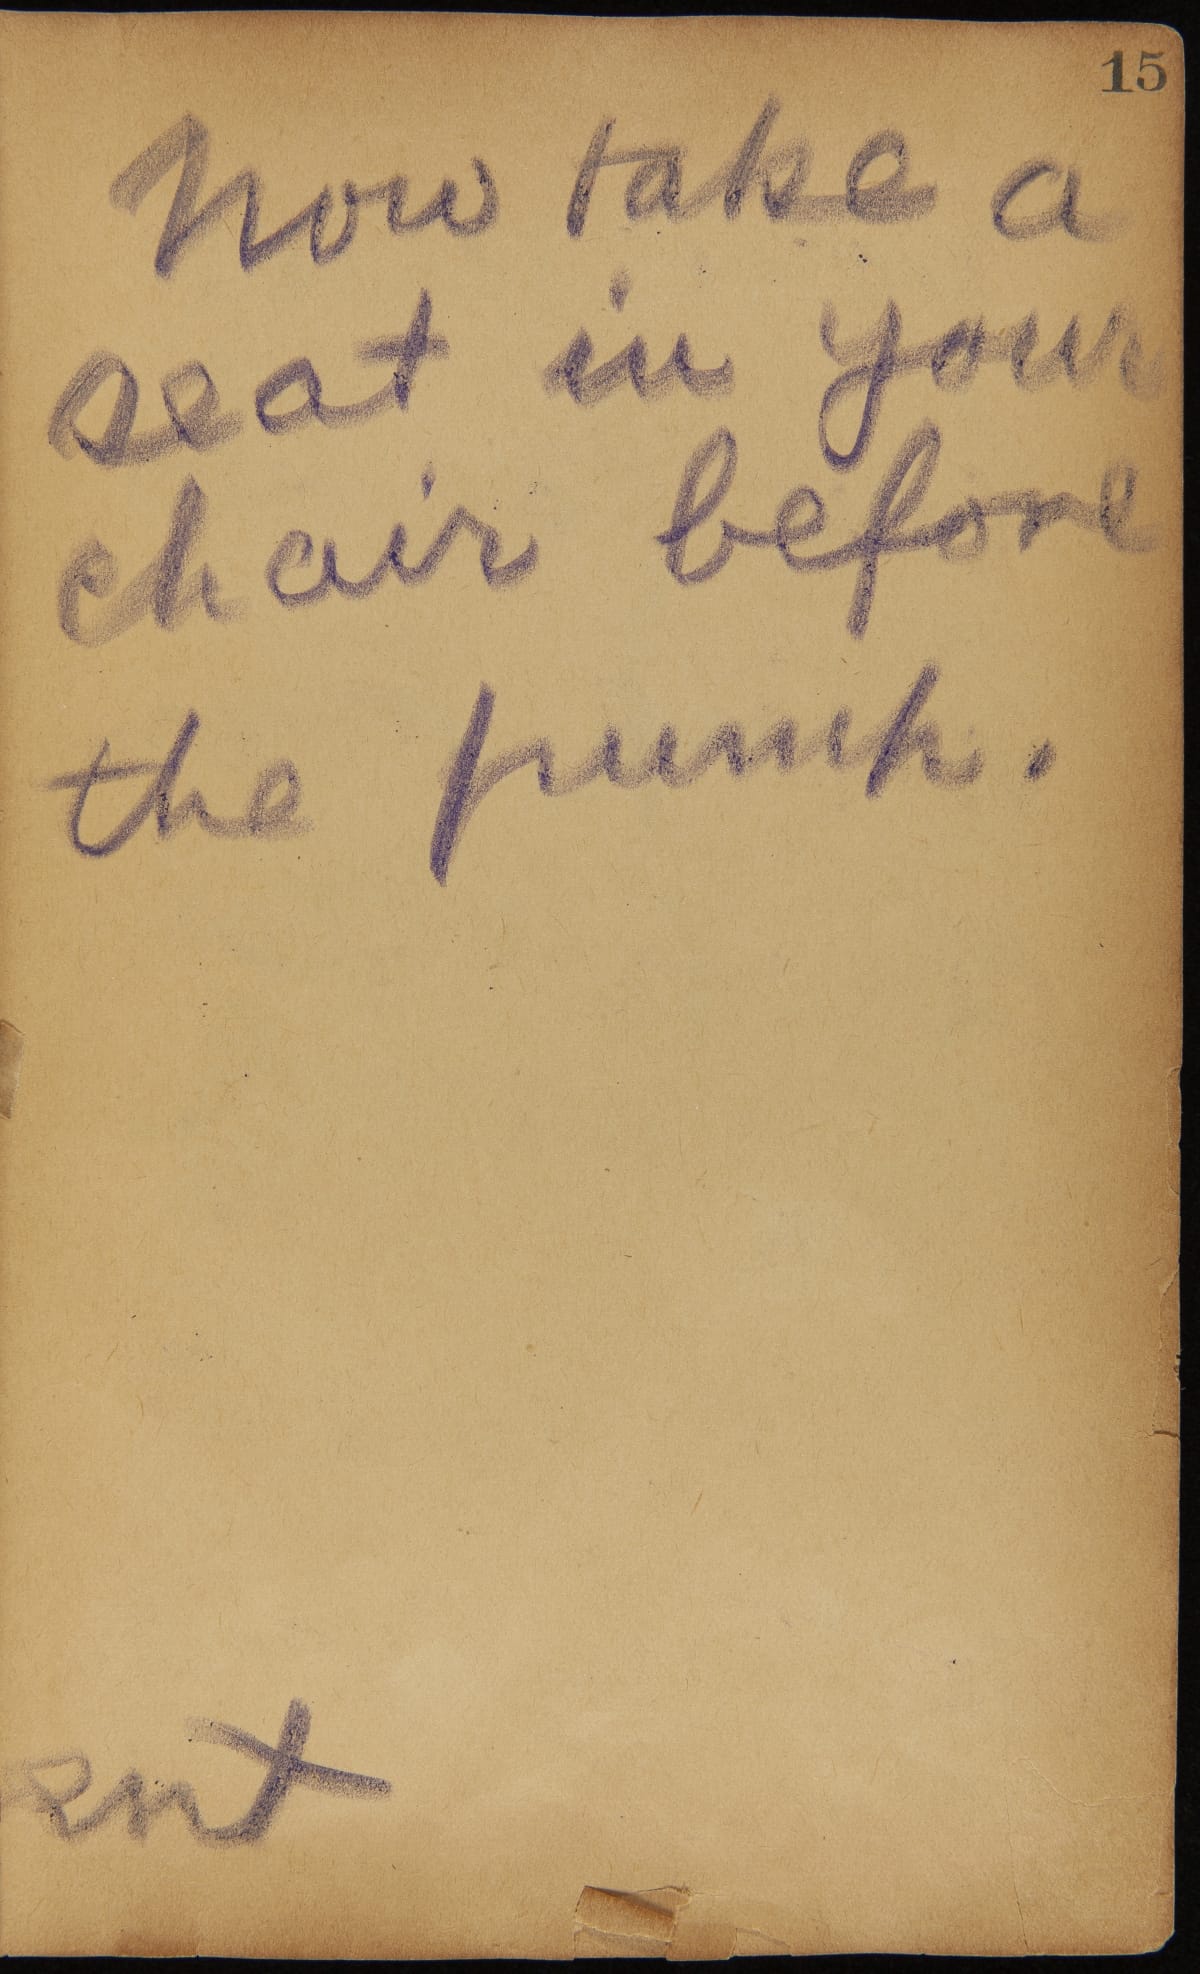 15
Now take a
seat in your
chair before
the pump.
ent